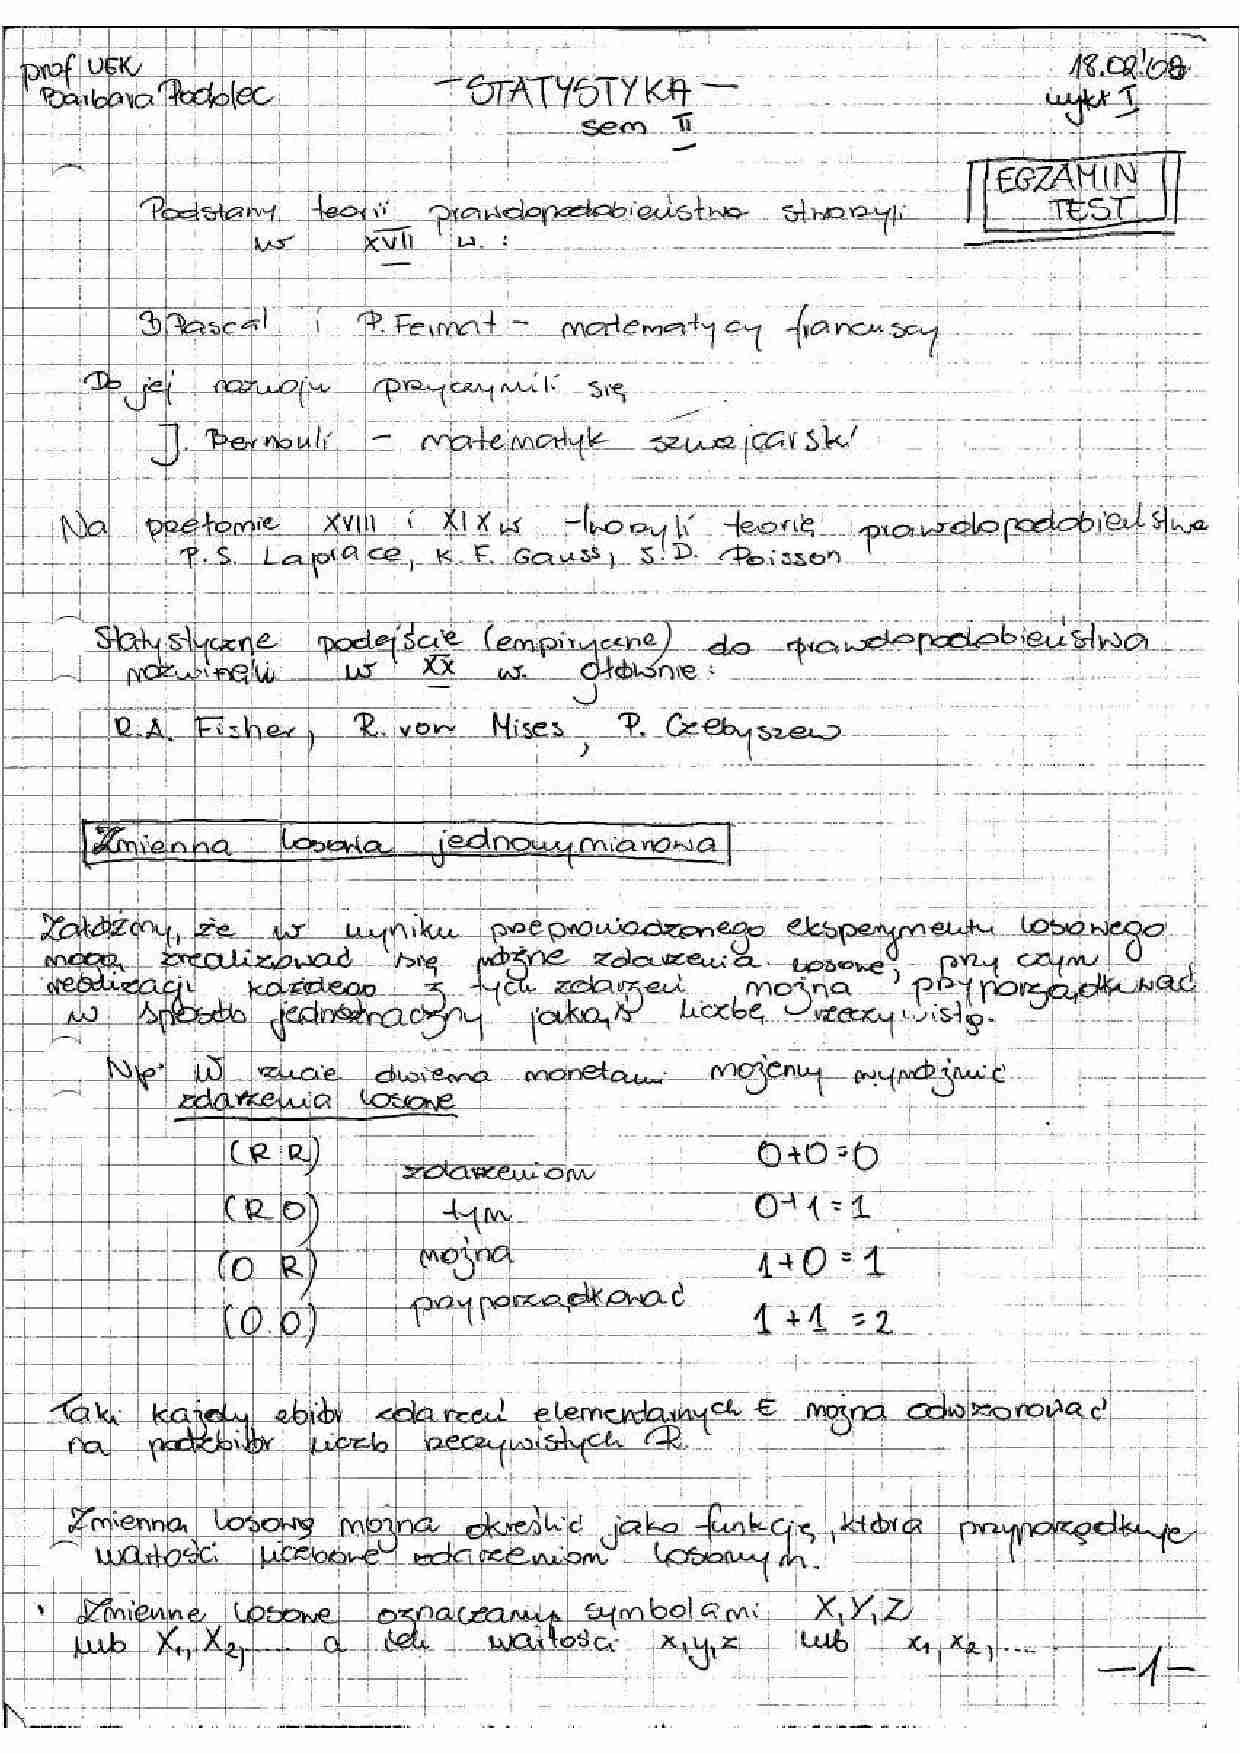 prof UEK
Barbara Podolec
- STATYSTYKA -
sem II
18.02.'08
wykł I
EGZAMIN
TEST
Podstawy teorii prawdopodobieństwa stworzyli
w XVII w. :
B Pascal i P. Fermat - matematycy francuscy
Do jej rozwoju przyczynili się
J. Bernouli - matematyk szwajcarski
Na przełomie XVIII i XIX w tworzyli teorię prawdopodobieństwa
P.S. Laplace, K.F. Gauss, S.D. Poisson
Statystyczne podejście (empiryczne) do prawdopodobieństwa
rozwinęli w XX w. głównie:
R.A. Fisher, R. von Mises, P. Czebyszew
Zmienna losowa jednowymiarowa
Załóżmy, że w wyniku przeprowadzonego eksperymentu losowego
mogą zrealizować się różne zdarzenia losowe, przy czym
realizacji każdego z tych zdarzeń można przyporządkować
w sposób jednoznaczny jakąś liczbę rzeczywistą.
Np. W rzucie dwiema monetami możemy wyróżnić
zdarzenia losowe
(R R) 0+0=0
zdarzeniom
(R O) tym 0+1=1
(O R) można 1+0=1
przyporządkować
(O O) 1+1=2
Taki każdy zbiór zdarzeń elementarnych E można odwzorować
na podzbiór liczb rzeczywistych R.
Zmienną losową można określić jako funkcję, która przyporządkuje
wartości liczbowe zdarzeniom losowym.
• Zmienne losowe oznaczamy symbolami X,Y,Z
lub X₁, X₂,.... a ich wartości x,y,z lub x₁, x₂,....
-1-